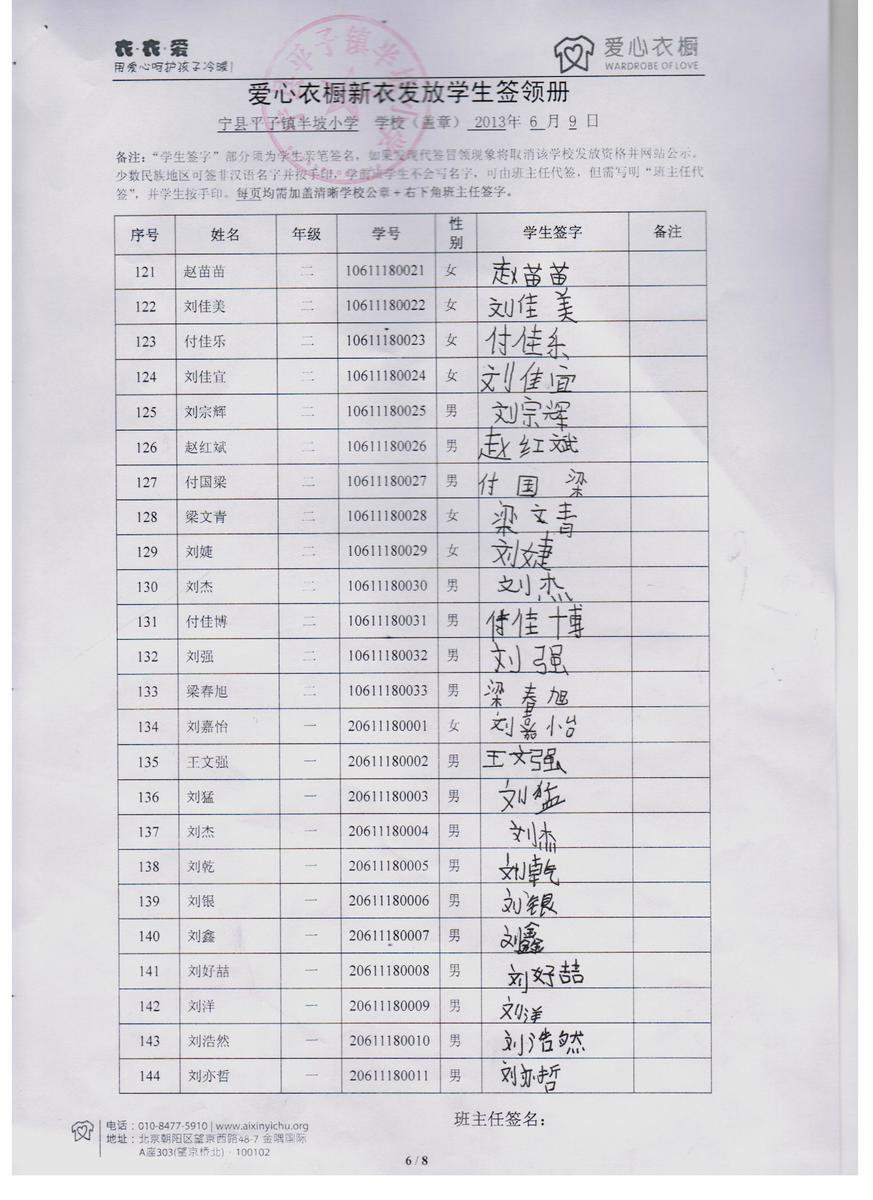 衣·衣·爱
用爱心呵护孩子冷暖!
爱心衣橱
WARDROBE OF LOVE
爱心衣橱新衣发放学生签领册
宁县平子镇半坡小学 学校（盖章） 2013年 6 月 9 日
备注：“学生签字”部分须为学生亲笔签名，如果发现代签冒领现象将取消该学校发放资格并网站公示。
少数民族地区可签非汉语名字并按手印，学前班学生不会写名字，可由班主任代签，但需写明“班主任代
签”，并学生按手印。每页均需加盖清晰学校公章+右下角班主任签字。
序号 姓名 年级 学号 性别 学生签字 备注
121 赵苗苗 二 10611180021 女 赵苗苗
122 刘佳美 二 10611180022 女 刘佳美
123 付佳乐 二 10611180023 女 付佳乐
124 刘佳宜 二 10611180024 女 刘佳宜
125 刘宗辉 二 10611180025 男 刘宗辉
126 赵红斌 二 10611180026 男 赵红斌
127 付国梁 二 10611180027 男 付国梁
128 梁文青 二 10611180028 女 梁文青
129 刘婕 二 10611180029 女 刘婕
130 刘杰 二 10611180030 男 刘杰
131 付佳博 二 10611180031 男 付佳博
132 刘强 二 10611180032 男 刘强
133 梁春旭 二 10611180033 男 梁春旭
134 刘嘉怡 一 20611180001 女 刘嘉怡
135 王文强 一 20611180002 男 王文强
136 刘猛 一 20611180003 男 刘猛
137 刘杰 一 20611180004 男 刘杰
138 刘乾 一 20611180005 男 刘乾
139 刘银 一 20611180006 男 刘银
140 刘鑫 一 20611180007 男 刘鑫
141 刘好喆 一 20611180008 男 刘好喆
142 刘洋 一 20611180009 男 刘洋
143 刘浩然 一 20611180010 男 刘浩然
144 刘亦哲 一 20611180011 男 刘亦哲
班主任签名：
电话：010-8477-5910 | www.aixinyichu.org
地址：北京朝阳区望京西路48-7 金隅国际
A座303(望京桥北)·100102
6 / 8